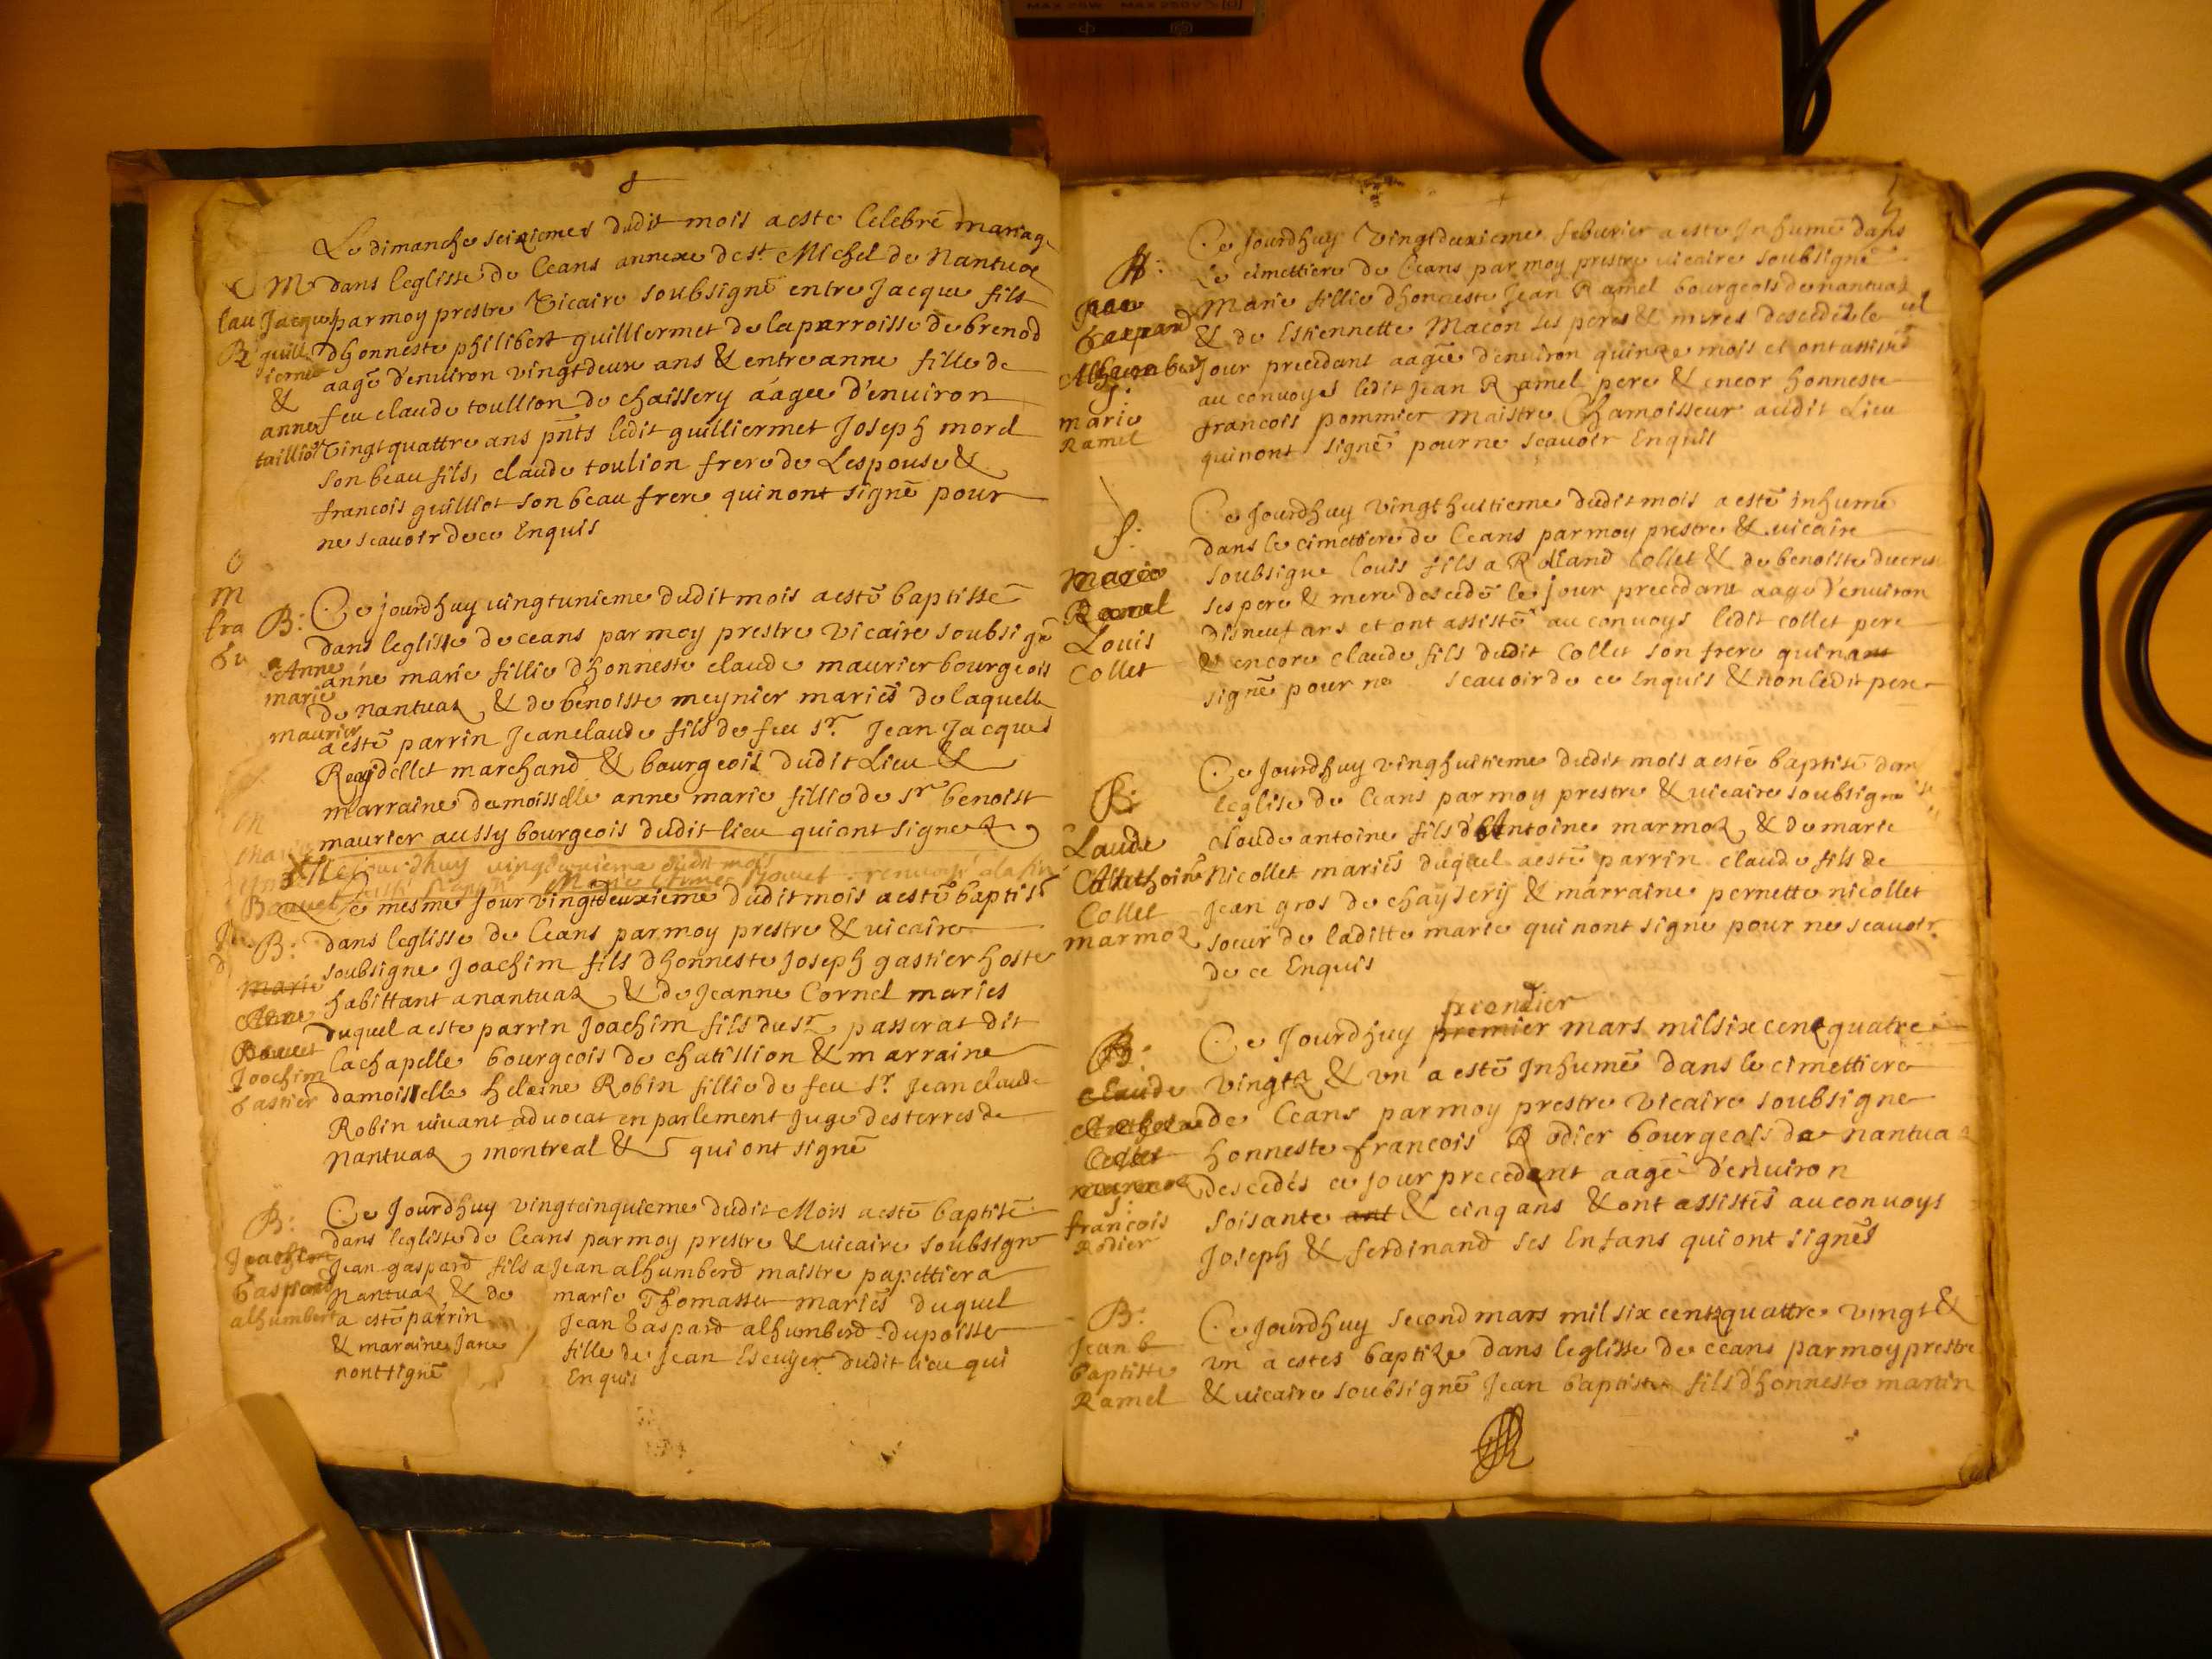 Le dimanche seiziemes dudit mois a este celebré mariage
M dans leglisse de ceans annexe de st Michel de Nantuaz
Jacques par moy prestre Vicaire soubsigné entre Jacque fils
guilliermet dhonneste philibert guilliermet de la parroisse de brenod
aagé d'enuiron vingtdeux ans & entre anne fille de
& feu claude toullion de chaissery áagee d'enuiron
anne taillion Vingt quattre ans pñts ledit guilliermet Joseph morel
son beau fils, claude toulion frere de Lespouse &
francois guilliot son beau frere qui nont signé pour
ne scauoir de ce Enquis
B: Ce jourdhuy uingtunieme dudit mois a esté baptissé
dans leglisse de ceans par moy prestre vicaire soubsigé
Anne anne marie fillie d'honneste claude maurier bourgeois
marie de nantuaz & de benoiste meynier mariés de laquelle
maurier a esté parrin Jean claude fils de feu sr. Jean Jacques
Reydellet marchand & bourgeois dudit Lieu &
marraine demoisselle anne marie fillie de sr benoist
maurier aussy bourgeois dudit lieu qui ont signez
Ce mesme Jour vingtdeuxieme dudit mois a esté baptisé
B: dans leglisse de Ceans par moy prestre & uicaire
soubsigne Joachim fils dhonneste Joseph gastier hoste
marie habittant a nantuaz & de Jeanne Cornel maries
Anne duquel a este parrin Joachim fils du sr passerat dit
Bouuet lachapelle bourgeois de chatillion & marraine
Joochim gastier damoisselle heleine Robin fillie de feu sr. Jean claude
Robin uiuant aduocat en parlement Juge des terres de
nantuaz, montreal & qui ont signé
B: Ce Jourdhuy vingtcinquieme dudit Mois a esté baptisé
Joachim dans leglisse de Ceans par moy prestre & uicaire soubsigne
gaspard Jean gaspard fils a Jean alhumberd maistre papettier a
alhumbert nantuaz & de marie Thomasset mariés duquel
a esté parrin Jean Gaspard alhumberd dupoisse
& maraine Jane fille de Jean Escuyer dudit lieu qui
nont signé Enquis
Ce Jourdhuy Vingtdeuxieme feburier a este Inhumé dans
Le cimettiere de Ceans par moy prestre uicaire soubsigné
Marie fillie dhonneste Jean Ramel bourgeois de nantuaz
gaspard & de Estiennette Macon ses peres & meres desceddé le
Alhumberd Jour precedant aagée d'enuiron quinze mois et ont assisté
S: au conuoys ledit Jean Ramel pere & encor honneste
marie francois pommier maistre Chamoisseur audit Lieu
Ramel qui nont signé pour ne scauoir Enquis
S: Ce Jourdhuy vingthuitieme dudit mois a esté inhumé
dans le cimettiere de Ceans par moy prestre & uicaire
marie soubsigne louis fils a Rolland collet & de benoiste ducret
Ramel ses pere & mere descedé le jour precedant aagé d'enuiron
Louis disneuf ans et ont assisté au conuoys ledit collet pere
Collet & encore claude fils dudit Collet son frere qui nont
signé pour ne scauoir de ce Enquis & non ledit pere
Ce Jourdhuy vinghuitieme dudit mois a esté baptisé dan
B: leglise de Ceans par moy prestre & uicaire soubsigne
Laude cloude antoine fils d'Antoine marmoz & de marie
Anthoine Nicollet mariés duquel a esté parrin claude fils de
Collet Jean gros de chayserÿ & márraine pernette nicollet
marmoz soeur de laditte marie qui nont signé pour ne scauoir
de ce Enquis
B: Ce Jourdhuy premier mars mil six cenz quatre
claude vingtz & un a esté Inhumé dans le cimettiere
de Ceans par moy prestre vicaire soubsigne
Collet honneste francois Rodier bourgeois de nantuaz
descedés ce jour precedant aagé d'enuiron
S: francois soisante ant & cinq ans & ont assistés au conuoys
Rodier Joseph & ferdinand ses Enfans qui ont signés
B: Ce Jourdhuy second mars mil six centz quattre vingt &
Jean b un a estes baptize dans leglisse de céans par moy prestre
baptiste
Ramel & uicaire soubsigné Jean baptiste fils d'honneste martin